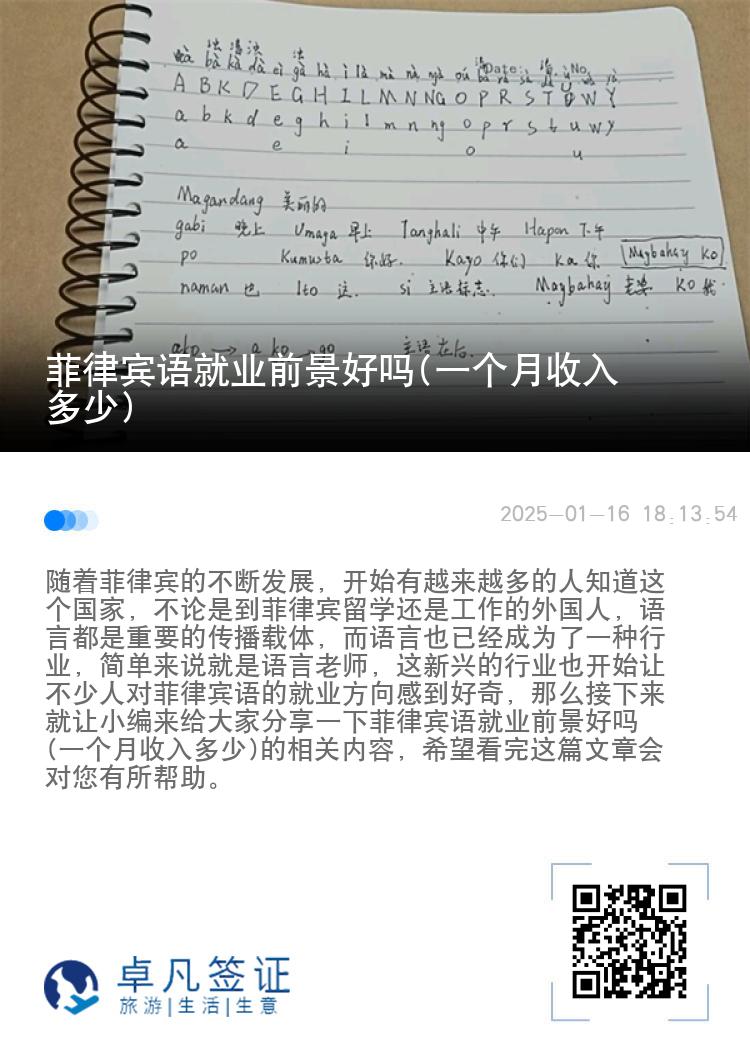 浊 浊 浊 浊
bà kà dà ei gà hà i là mà nà ngà
Date: No.
A B K D E G H I L M N NG O P R S T U W Y
a b k d e g h i l m n ng o p r s t u w y
a e i o u
Magandang 美丽的
gabi 晚上 Umaga 早上 Tanghali 中午 Hapon 下午
po Kumusta 你好. Kayo 你们 Ka 你 Maybahay ko
naman 也 Ito 这. si 主语标志. Maybahay 老婆 Ko 我.
ako → a ko → go 主语在后.
菲律宾语就业前景好吗(一个月收入
多少)
2025-01-16 18:13:54
随着菲律宾的不断发展，开始有越来越多的人知道这
个国家，不论是到菲律宾留学还是工作的外国人，语
言都是重要的传播载体，而语言也已经成为了一种行
业，简单来说就是语言老师，这新兴的行业也开始让
不少人对菲律宾语的就业方向感到好奇，那么接下来
就让小编来给大家分享一下菲律宾语就业前景好吗
(一个月收入多少)的相关内容，希望看完这篇文章会
对您有所帮助。
卓凡签证
旅游|生活|生意